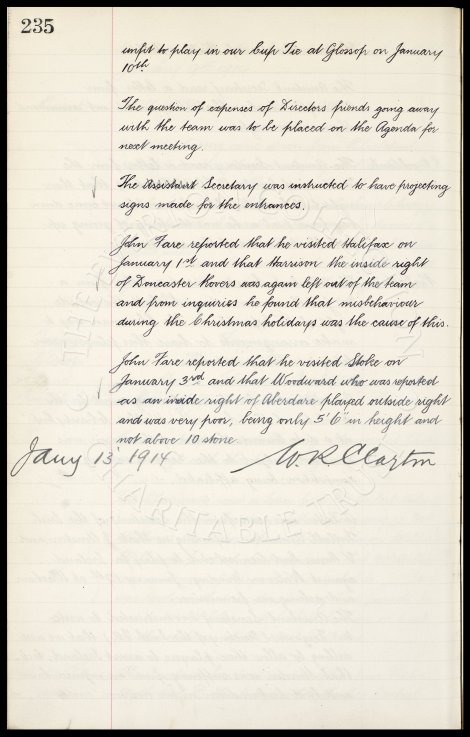 235
unfit to play in our Cup Tie at Glossop on January
10th
The question of expenses of Directors friends going away
with the team was to be placed on the Agenda for
next meeting.
The Assistant Secretary was instructed to have projecting
signs made for the entrances.
John Fare reported that he visited Halifax on
January 1st and that Harrison the inside right
of Doncaster Rovers was again left out of the team
and from inquiries he found that misbehaviour
during the Christmas holidays was the cause of this.
John Fare reported that he visited Stoke on
January 3rd and that Woodward who was reported
as an inside right of Aberdare played outside right
and was very poor, being only 5' 6" in height and
not above 10 stone
Jany 13 1914 W. R Clayton
CHARITABLE TRU